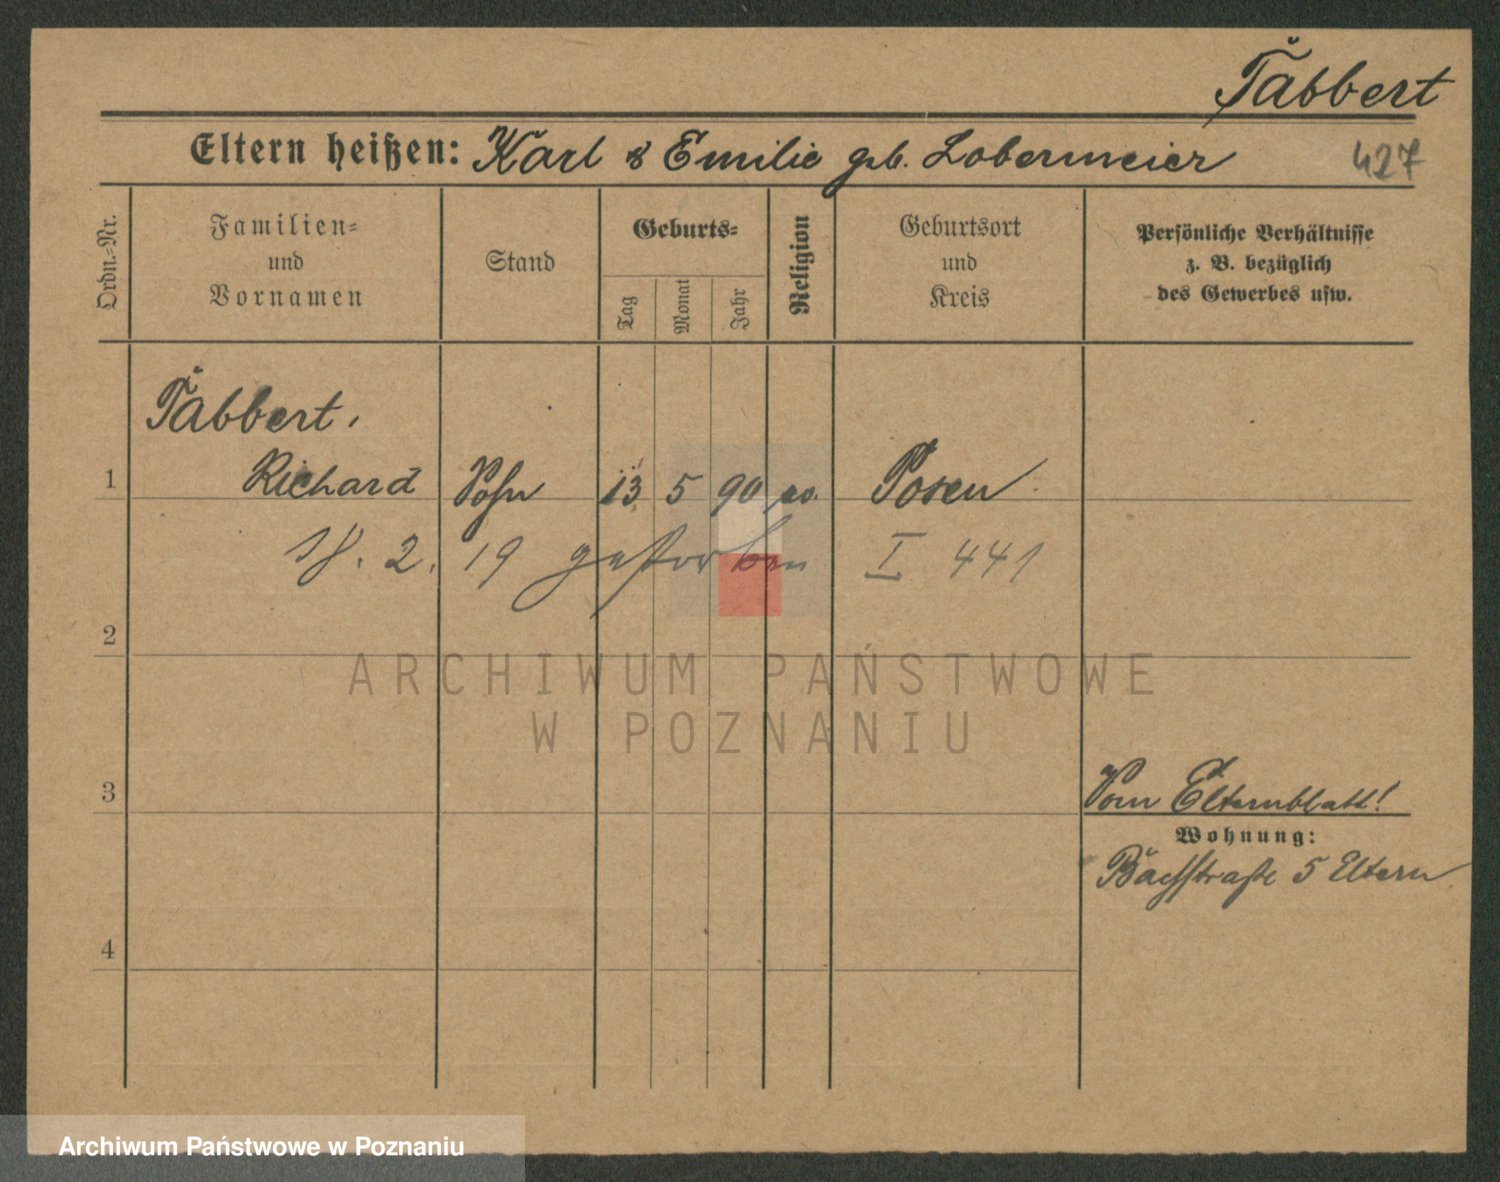 Tabbert
Eltern heißen: Karl & Emilie geb. Lobermeier 427
Ordn.-Nr.
Familien-
und
Vornamen
Stand
Geburts-
Tag
Monat
Jahr
Religion
Geburtsort
und
Kreis
Persönliche Verhältnisse
z. B. bezüglich
des Gewerbes usw.
Tabbert,
1 Richard Sohn 13 5 90 Posen
18. 2. 19 gestorben I 441
2
ARCHIWUM PAŃSTWOWE
W POZNANIU
3 Vom Elternblatt!
Wohnung:
Bachstraße 5 Eltern
4
Archiwum Państwowe w Poznaniu